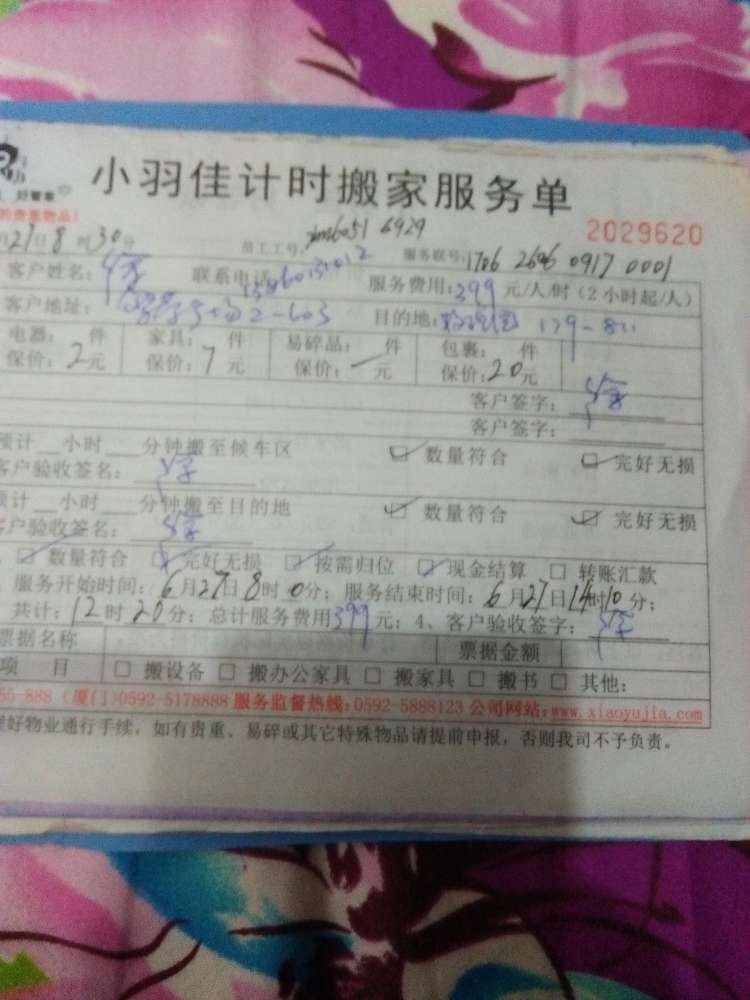 小羽佳计时搬家服务单
好管家
的贵重物品！
2029620
月27日8时30分 员工工号： 6051 6929 服务联号：1706 2606 0917 0001
客户姓名： 联系电话 服务费用：399元/人/时（2小时起/人）
客户地址： 2-603 目的地： 179-811
电器： 件 家具： 件 易碎品： 件 包裹： 件
保价：2元 保价：7元 保价：一元 保价：20元
客户签字：
客户签字：
预计__小时__分钟搬至候车区 数量符合 完好无损
客户验收签名：
预计__小时__分钟搬至目的地 数量符合 完好无损
客户验收签名：
数量符合 完好无损 按需归位 现金结算 □ 转账汇款
服务开始时间：6月27日8时0分；服务结束时间：6月27日14时10分；
共计：12时20分；总计服务费用399元；4、客户验收签字：
票据名称 票据金额
项 目 □ 搬设备 □ 搬办公家具 □ 搬家具 □ 搬书 □ 其他：
55-888（厦门）0592-5178888 服务监督热线：0592-5888123 公司网站：www.xiaoyujia.com
理好物业通行手续，如有贵重、易碎或其它特殊物品请提前申报，否则我司不予负责。